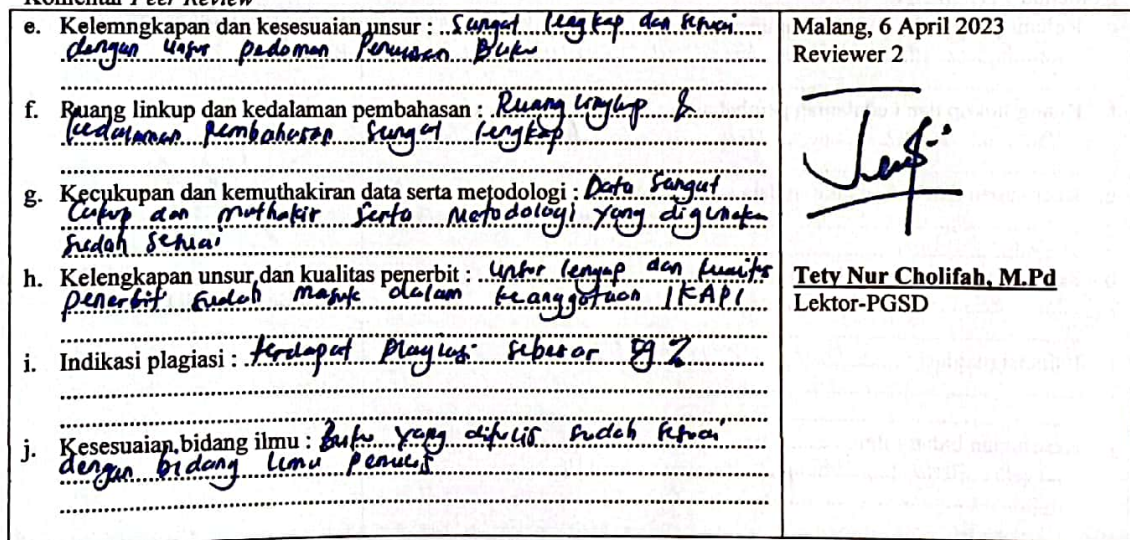 Komentar Peer Review
e. Kelemngkapan dan kesesuaian unsur : Sangat lengkap dan sesuai
dengan unsur pedoman Penulisan Buku
f. Ruang linkup dan kedalaman pembahasan : Ruang lingkup &
kedalaman pembahasan sangat lengkap
g. Kecukupan dan kemuthakiran data serta metodologi : Data Sangat
Cukup dan muthakir serta Metodologi yang digunakan
sudah sesuai
h. Kelengkapan unsur dan kualitas penerbit : unsur lengkap dan kualitas
penerbit sudah masuk dalam keanggotaan IKAPI
i. Indikasi plagiasi : terdapat Plagiasi sebesar %
j. Kesesuaian bidang ilmu : Buku yang ditulis sudah sesuai
dengan bidang ilmu penulis
Malang, 6 April 2023
Reviewer 2
Tety Nur Cholifah, M.Pd
Lektor-PGSD